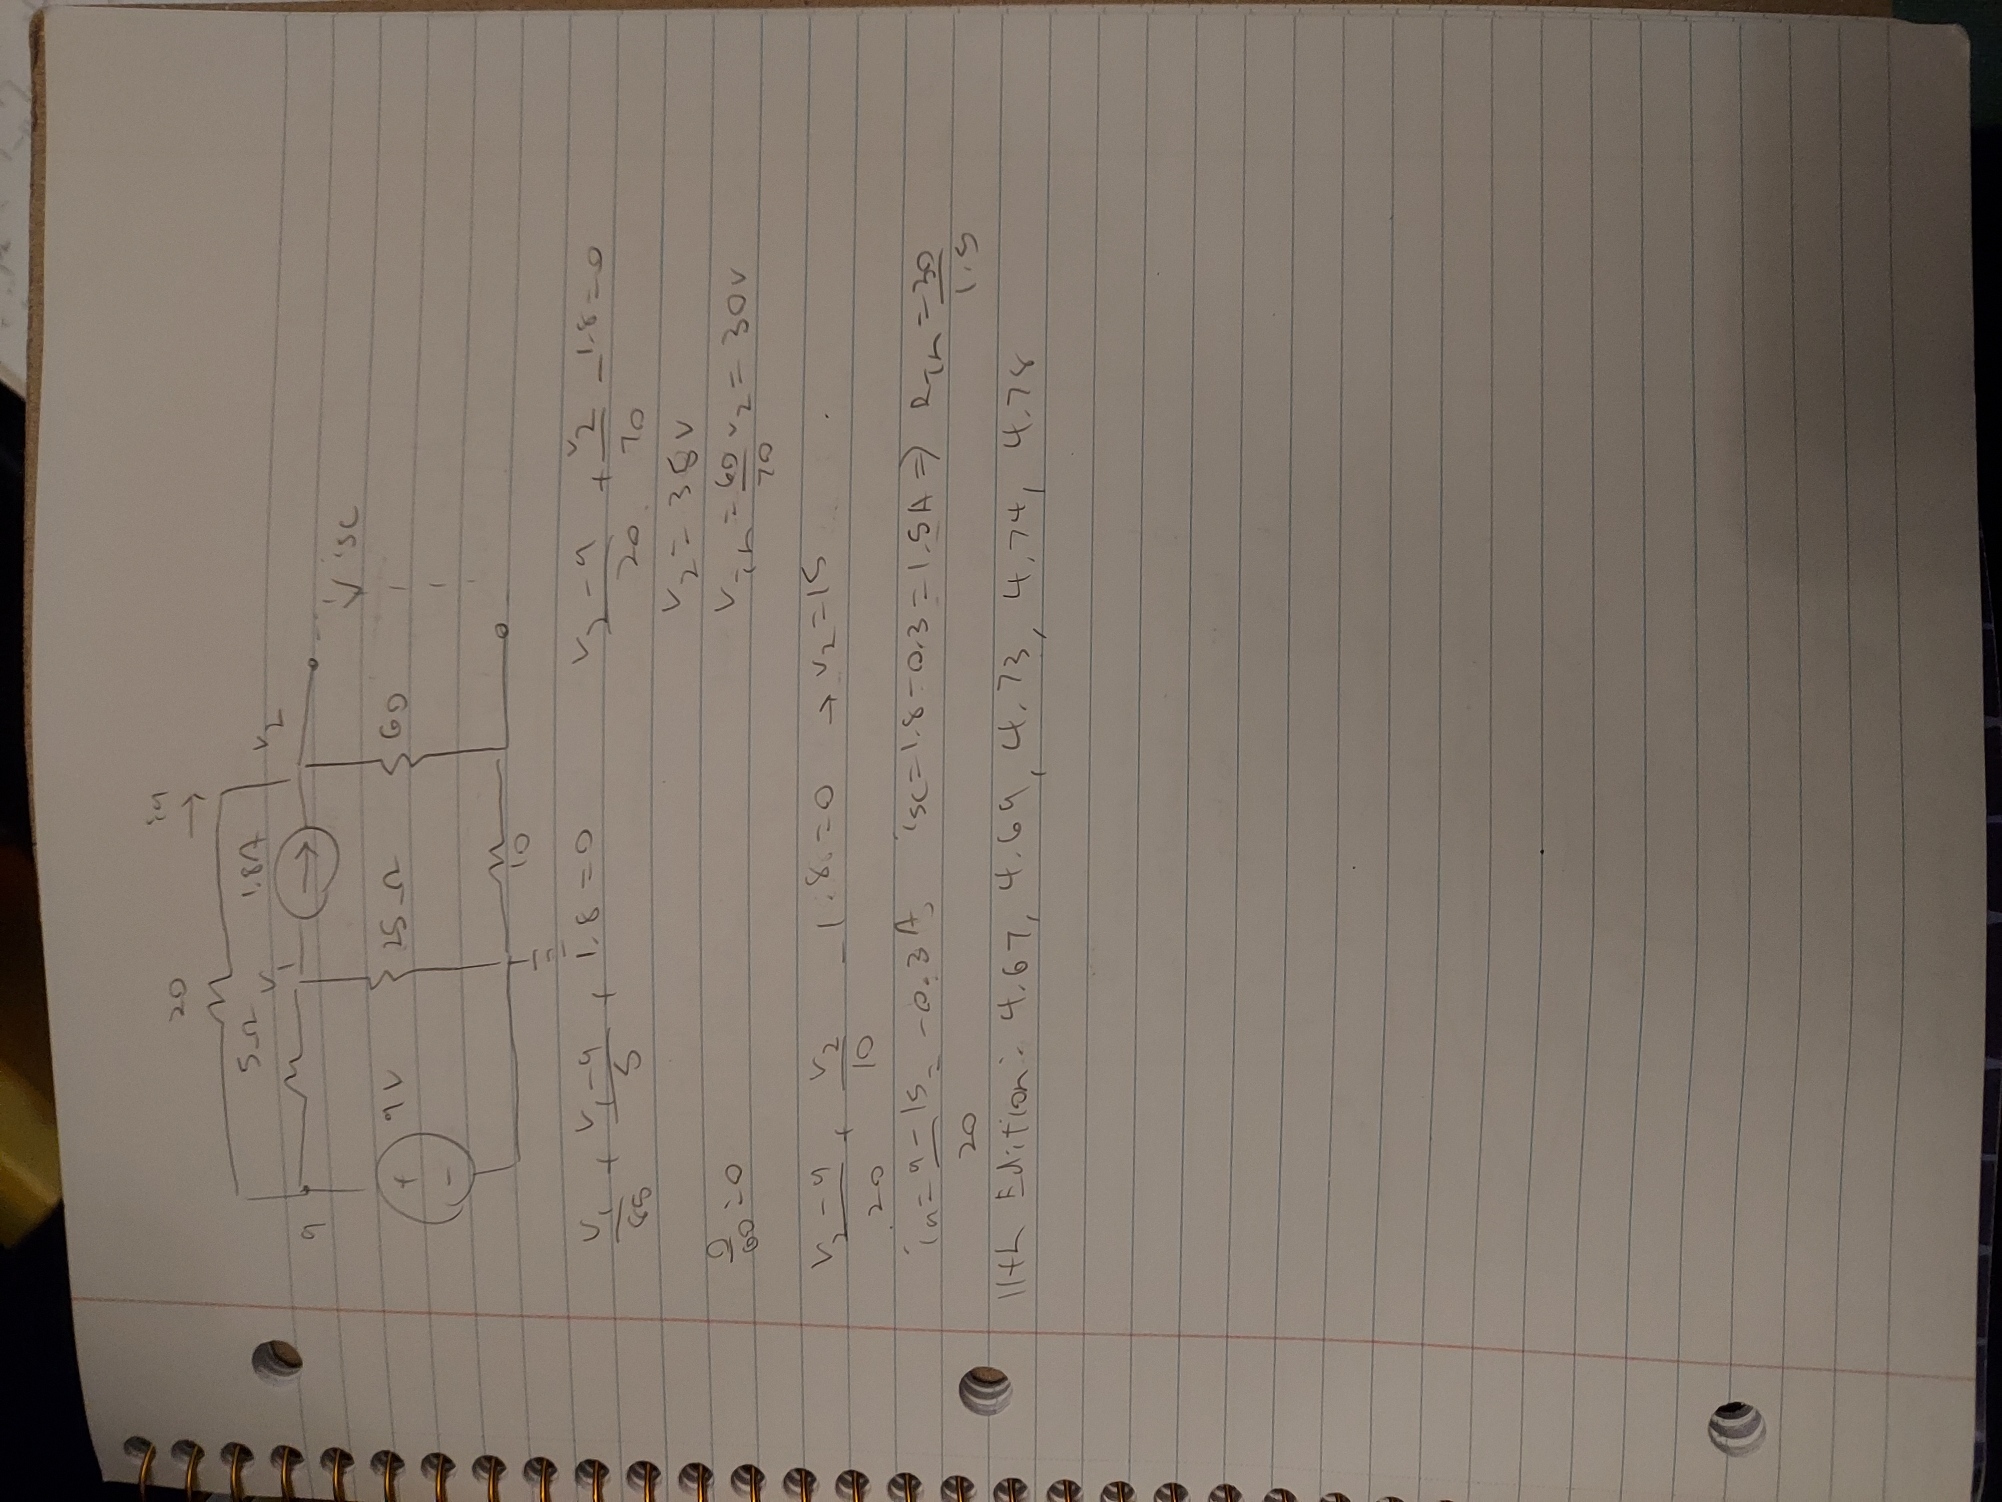 20 ia
5Ω v1 1.8A v2
9
isc
9V 25Ω 60
+
-
10
v1/25 + (v1-9)/5 + 1.8=0
(v2-9)/20 + v2/70 - 1.8=0
v2 = 35V
0/60=0
vTh = 60/70 v2 = 30V
(v2-9)/20 + v2/10 - 1.8=0 → v2=15
ia = (9-15)/20 = -0.3A, isc=1.8-0.3=1.5A ⇒ RTh = 30/1.5
11th Edition: 4.67, 4.69, 4.73, 4.74, 4.78